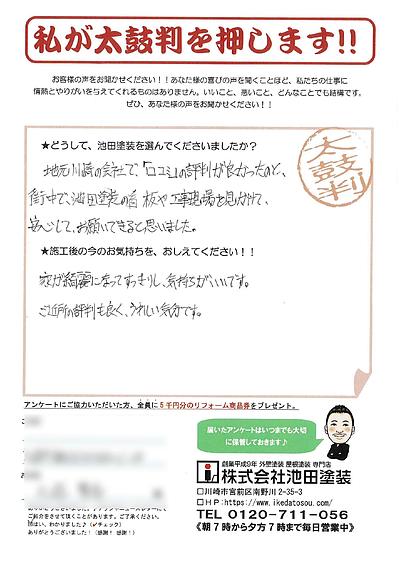 私が太鼓判を押します!!
お客様の声をお聞かせください！！あなた様の喜びの声を聞くことほど、私たちの仕事に
情熱とやりがいを与えてくれるものはありません。いいこと、悪いこと、どんなことでも結構です。
ぜひ、あなた様の声をお聞かせください！！
★どうして、池田塗装を選んでくださいましたか？
太鼓判
地元川崎の会社で、「口コミ」の評判が良かったのと、
街中で、池田塗装の看板や工事現場を見かけて、
安心して、お願いできると思いました。
★施工後の今のお気持ちを、おしえてください！！
家が綺麗になってすっきりし、気持ちがいいです。
ご近所の評判も良く、うれしい気分です。
アンケートにご協力いただいた方、全員に5千円分のリフォーム商品券をプレゼント。
届いたアンケートはいつまでも大切
に保管しておきます♪
創業平成9年 外壁塗装 屋根塗装 専門店
株式会社池田塗装
□川崎市宮前区南野川2-35-3
□HP:https://www.ikedatosou.com/
TEL 0120-711-056
《朝7時から夕方7時まで毎日営業中》
ご紹介を頂きますことがあります。ご了承ください。
はい、わかりました♪（✓チェック）
ありがとうございました！（感謝！感謝！）